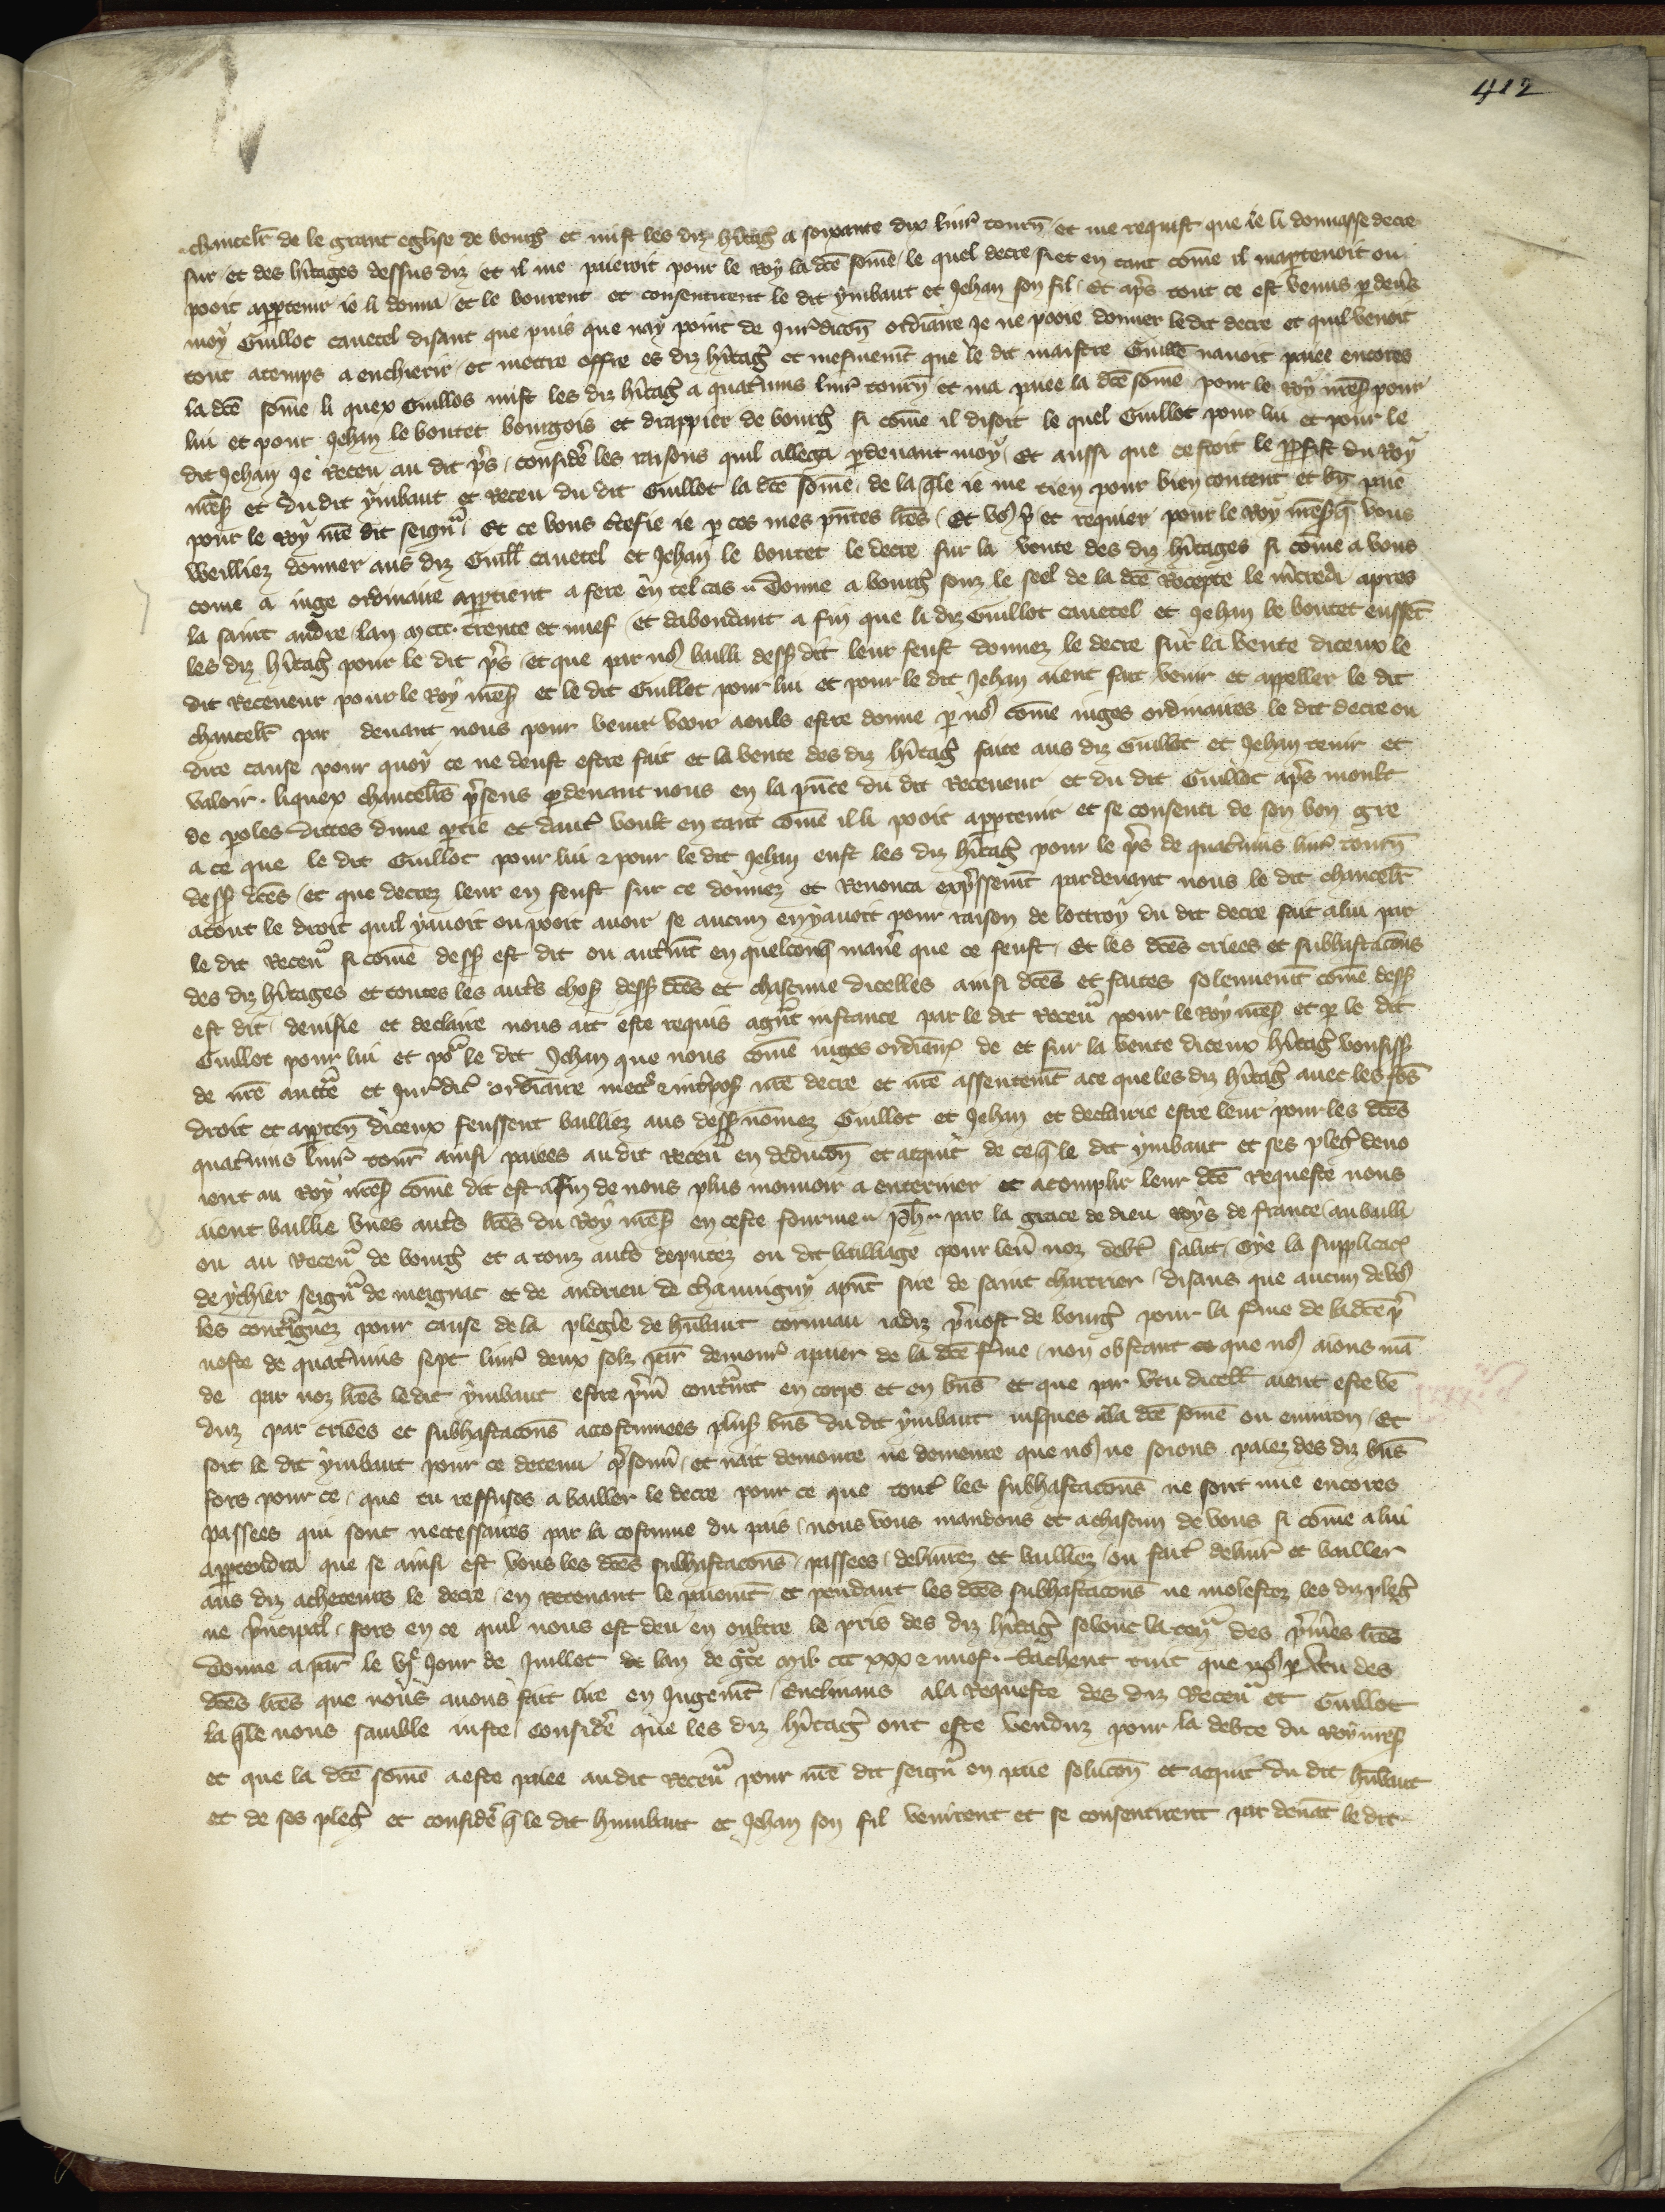 412
chancelr̄ de le grant eglise de bourg̃ et mist les diz hĩtag̃ a soixante dix liur̃ tourñ et me requist que ie li donnasse decre
sur et des hĩtages dessus diz et il me paieroit pour le Roy la dc̃e som̃e le quel decre si et en tant com̃e il mapartenoit ou
pooit appartenir ie li donnai et le vourent et consentirent le dit ymbaut et Jehan son fil Et ap̃s tout ce est venus p deũs
moy Guillot cauetel disant que puis que nay point de Jur̃dicon̄ ordiãire Je ne pooie donner le dit decre et quil venoit
tout atemps a enchierir et mettre offre es diz hĩtag̃ et mesmem̃t que le dit maistre Guill̃e nauoit paiee encores
la dc̃e som̃e li quex Guillos mist les diz hĩtag̃ a quat̃uins liur̃ tourñ et ma paiee la dc̃e som̃e pour le Roy nr̃es̃ pour
lui et pour Jehan le boutet bourgois et drappier de bourg̃ si com̃e il disoit le quel Guillot pour lui et pour le
dit Jehan Je Receu au dit p̃s considẽ les raisons quil allega pdeuant moy Et aussi que cestoit le profist du Roy
nr̃es̃ et du dit ymbaut et Receu du dit Guillot la dc̃e som̃e de la q̃le ie me tien pour bien content et bñ paie
pour le Roy nr̃e dit seigñr Et ce vous c̃tefie ie p ces mes pñtes lr̃es Et vo9 p̃ et requier pour le Roy nr̃es̃ q̃ vous
weilliez donner aus diz Guill̃ cauetel et Jehan le boutet le decre sur la vente des diz hĩtages si com̃e a vous
come a iuge ordinaire appartient a fere en tel cas Donne a bourg̃ souz le seel de la dc̃e Recepte le m̃credi apres
la saint andre lan m ccc. trente et nuef et dabondant a fin que li diz Guillot cauetel et Jehan le boutet eussẽt
les diz hĩtag̃ pour le dit p̃s et que par no9 bailli dess9 dit leur feust donnez le decre sur la vente diceux le
dit Receueur pour le Roy nr̃es̃ et le dit Guillot pour lui et pour le dit Jehan aient fait venir et appeller le dit
chancelr̄ par deuant nous pour venir veoir aeuls estre donne p no9 com̃e iuges ordinaires le dit decre ou
dire cause pour quoy ce ne deust estre fait et la vente des diz hĩtag̃ faite aus diz Guillot et Jehan tenir et
valoir. liquex chancelr̄s p̃sens pdeuant nous en la pñce du dit Receueur et du dit Guillot ap̃s moult
de poles dittes dune ptie et daut̃ voult en tant com̃e il li pooit appartenir et se consenti de son bon gre
a ce que le dit Guillot pour lui ⁊ pour le dit Jehan eust les diz hĩtag̃ pour le p̃s de quat̃uins liur̃ tourñ
dess9 dc̃es et que decrez leur en feust sur ce donnez et Renonca exp̃ssem̃t pardeuant nous le dit chancelr̄
atout le droit quil yauoit ou pooit auoir se aucun enyauoit pour raison de lottroy du dit decre fait alui par
le dit Receũr si com̃e dess9 est dit ou aut̃m̃t en quelconq̃ manẽ que ce feust Et les dc̃es criees et subhastacõns
des diz hĩtages et toutes les aut̃s chos̃ dess9 dc̃es et chascune dicelles ainsi dc̃es et faites solennem̃t com̃e dess9
est dit deuisie et declaire nous ait este requis agr̃t instance par le dit Receũr pour le Roy nr̃es̃ et p le dit
Guillot pour lui et po9 le dit Jehan que nous com̃e iuges ordiãir̃ de et sur la vente diceux hĩtag̃ vousiss̃
de nr̃e auctr̃e et Jur̃dic̃ ordiãire mett̃ ⁊ int̃pos̃ nr̃e decre et nr̃e assentem̃t ace que les diz hĩtag̃ auec les fõs
droit et apparteñ diceux feussent bailliez aus dess9 nom̃ez Guillot et Jehan et declairie estre leur pour les dc̃es
quat̃uins liur̃ tour̃ ainsi paiees au dit Receũr en deducõn et acquit de ce q̃ le dit ymbaut et ses pleg̃ deuo
ient au Roy nr̃es̃ com̃e dit est afin de nous plus mouuoir a enteriner et acomplir leur dc̃e Requeste nous
aient baillie vnes aut̃s lr̃es du Roy nr̃es̃ en ceste fourme ph̃ par la grace de dieu Roys de france au bailli
ou au Receũr de bourg̃ et a touz aut̃s deputez ou dit bailliage pour leũ noz debt̃ salut Oye la supplicac̃
de ychier seigñr de meignac et de andrieu de chauuigny apñt sire de saint chartrier disans que aucun de vo9
les contr̃gnez pour cause de la pleg̃ie de hũbaut cormau iadiz p̃uost de bourg̃ pour la f̃me de la dc̃e p̃
uoste de quat̃uins sept liur̃ deux solz par̃ demour̃ apaier de la dc̃e f̃me non obstant ce que no9 aions mã
de par noz lr̃es le dit ymbaut estre p̃m̃ contr̃int en corps et en bñs et que par ṽtu dicell̃ aient este vẽ
duz par criees et subhastacõns acostumees plus̃ bñs du dit ymbaut iusques ala dc̃e som̃e ou enuiron Et
soit le dit ymbaut pour ce detenu p̃sonñ et nait demoure ne demeure que no9 ne soions paiez des diz bñs
fors pour ce que tu reffuses a bailler le decre pour ce que tout̃ les subhastacõns ne sont mie encores
passees qui sont neccessaires par la costume du pais nous vous mandons et achascun de vous si com̃e a lui
appartendra que se ainsi est vous les dc̃es subhastacõns passees deliurez et bailliez ou fait̃ deliur̃ et bailler
aus diz acheteurs le decre en Retenant le paiem̃t et pendant les dc̃es subhastacõns ne molestez les diz pleg̃
ne p̃ncipal fors en ce quil nous est deu en oultre le pris des diz hĩtag̃ selonc la teñr des p̃m̃es lr̃es
Donne a par̃ le vj.e Jour de Juillet lan de gr̃ce mil. ccc xxx ⁊ nuef. Sachent tuit que no9 p ṽtu des
dc̃es lr̃es que nous auons fait lire en Jugem̃t Enclinans ala Requeste des diz Receũr et Guillot
la q̃le nous samble iuste considẽ que les diz hĩtag̃ ont este venduz pour la debte du Roy nr̃es̃
et que la dc̃e som̃e a este paiee au dit Receũr pour nr̃e dit seigñr en paie solucõn et acquit du dit hũbaut
et de ses pleg̃ et considẽ q̃ le dit humbaut et Jehan son fil veinrent et se consentirent par deuãt le dit